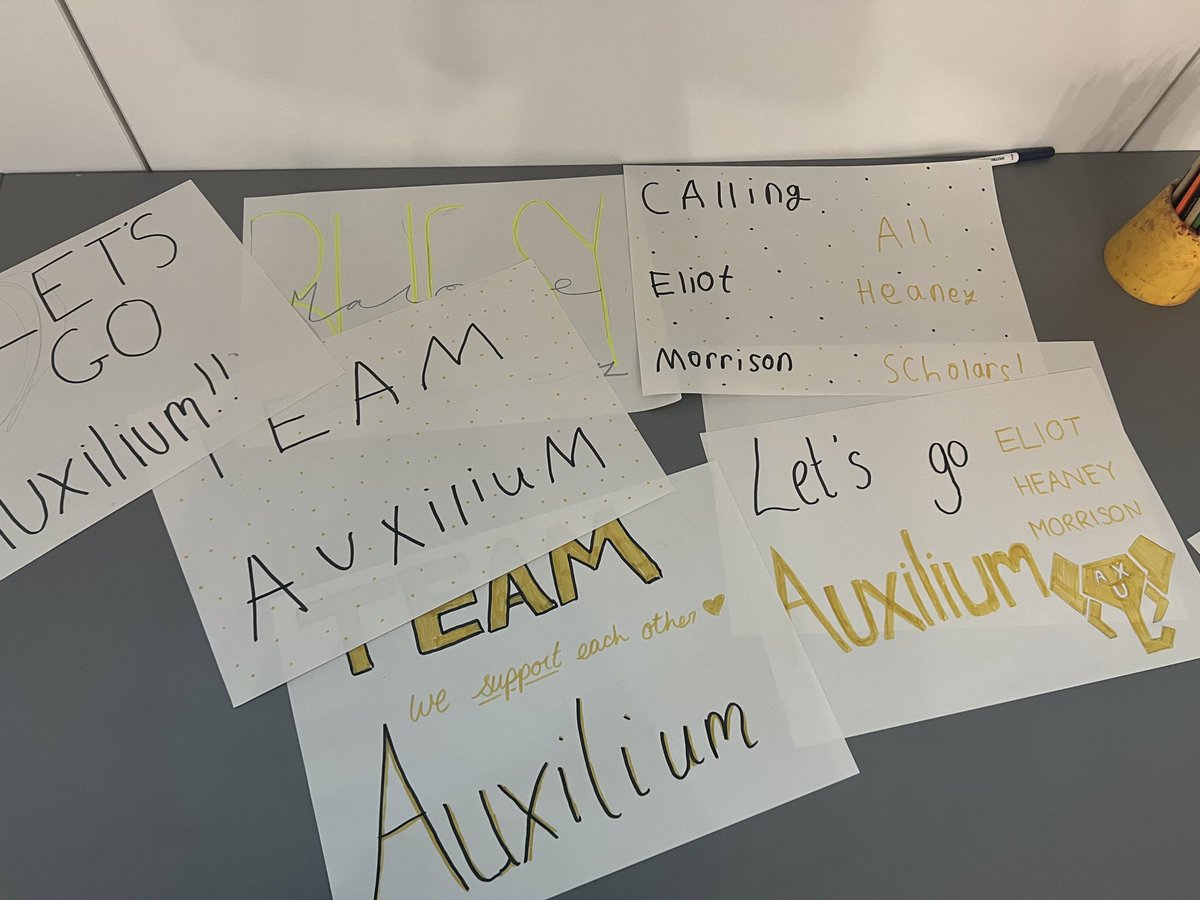 LET'S
GO
Auxilium!!
TEAM
AuxiliuM
CAlling
All
Eliot
Heaney
Morrison
SCholars!
Let's go
ELIOT
HEANEY
MORRISON
Auxilium
AUX
TEAM
We support each other
Auxilium